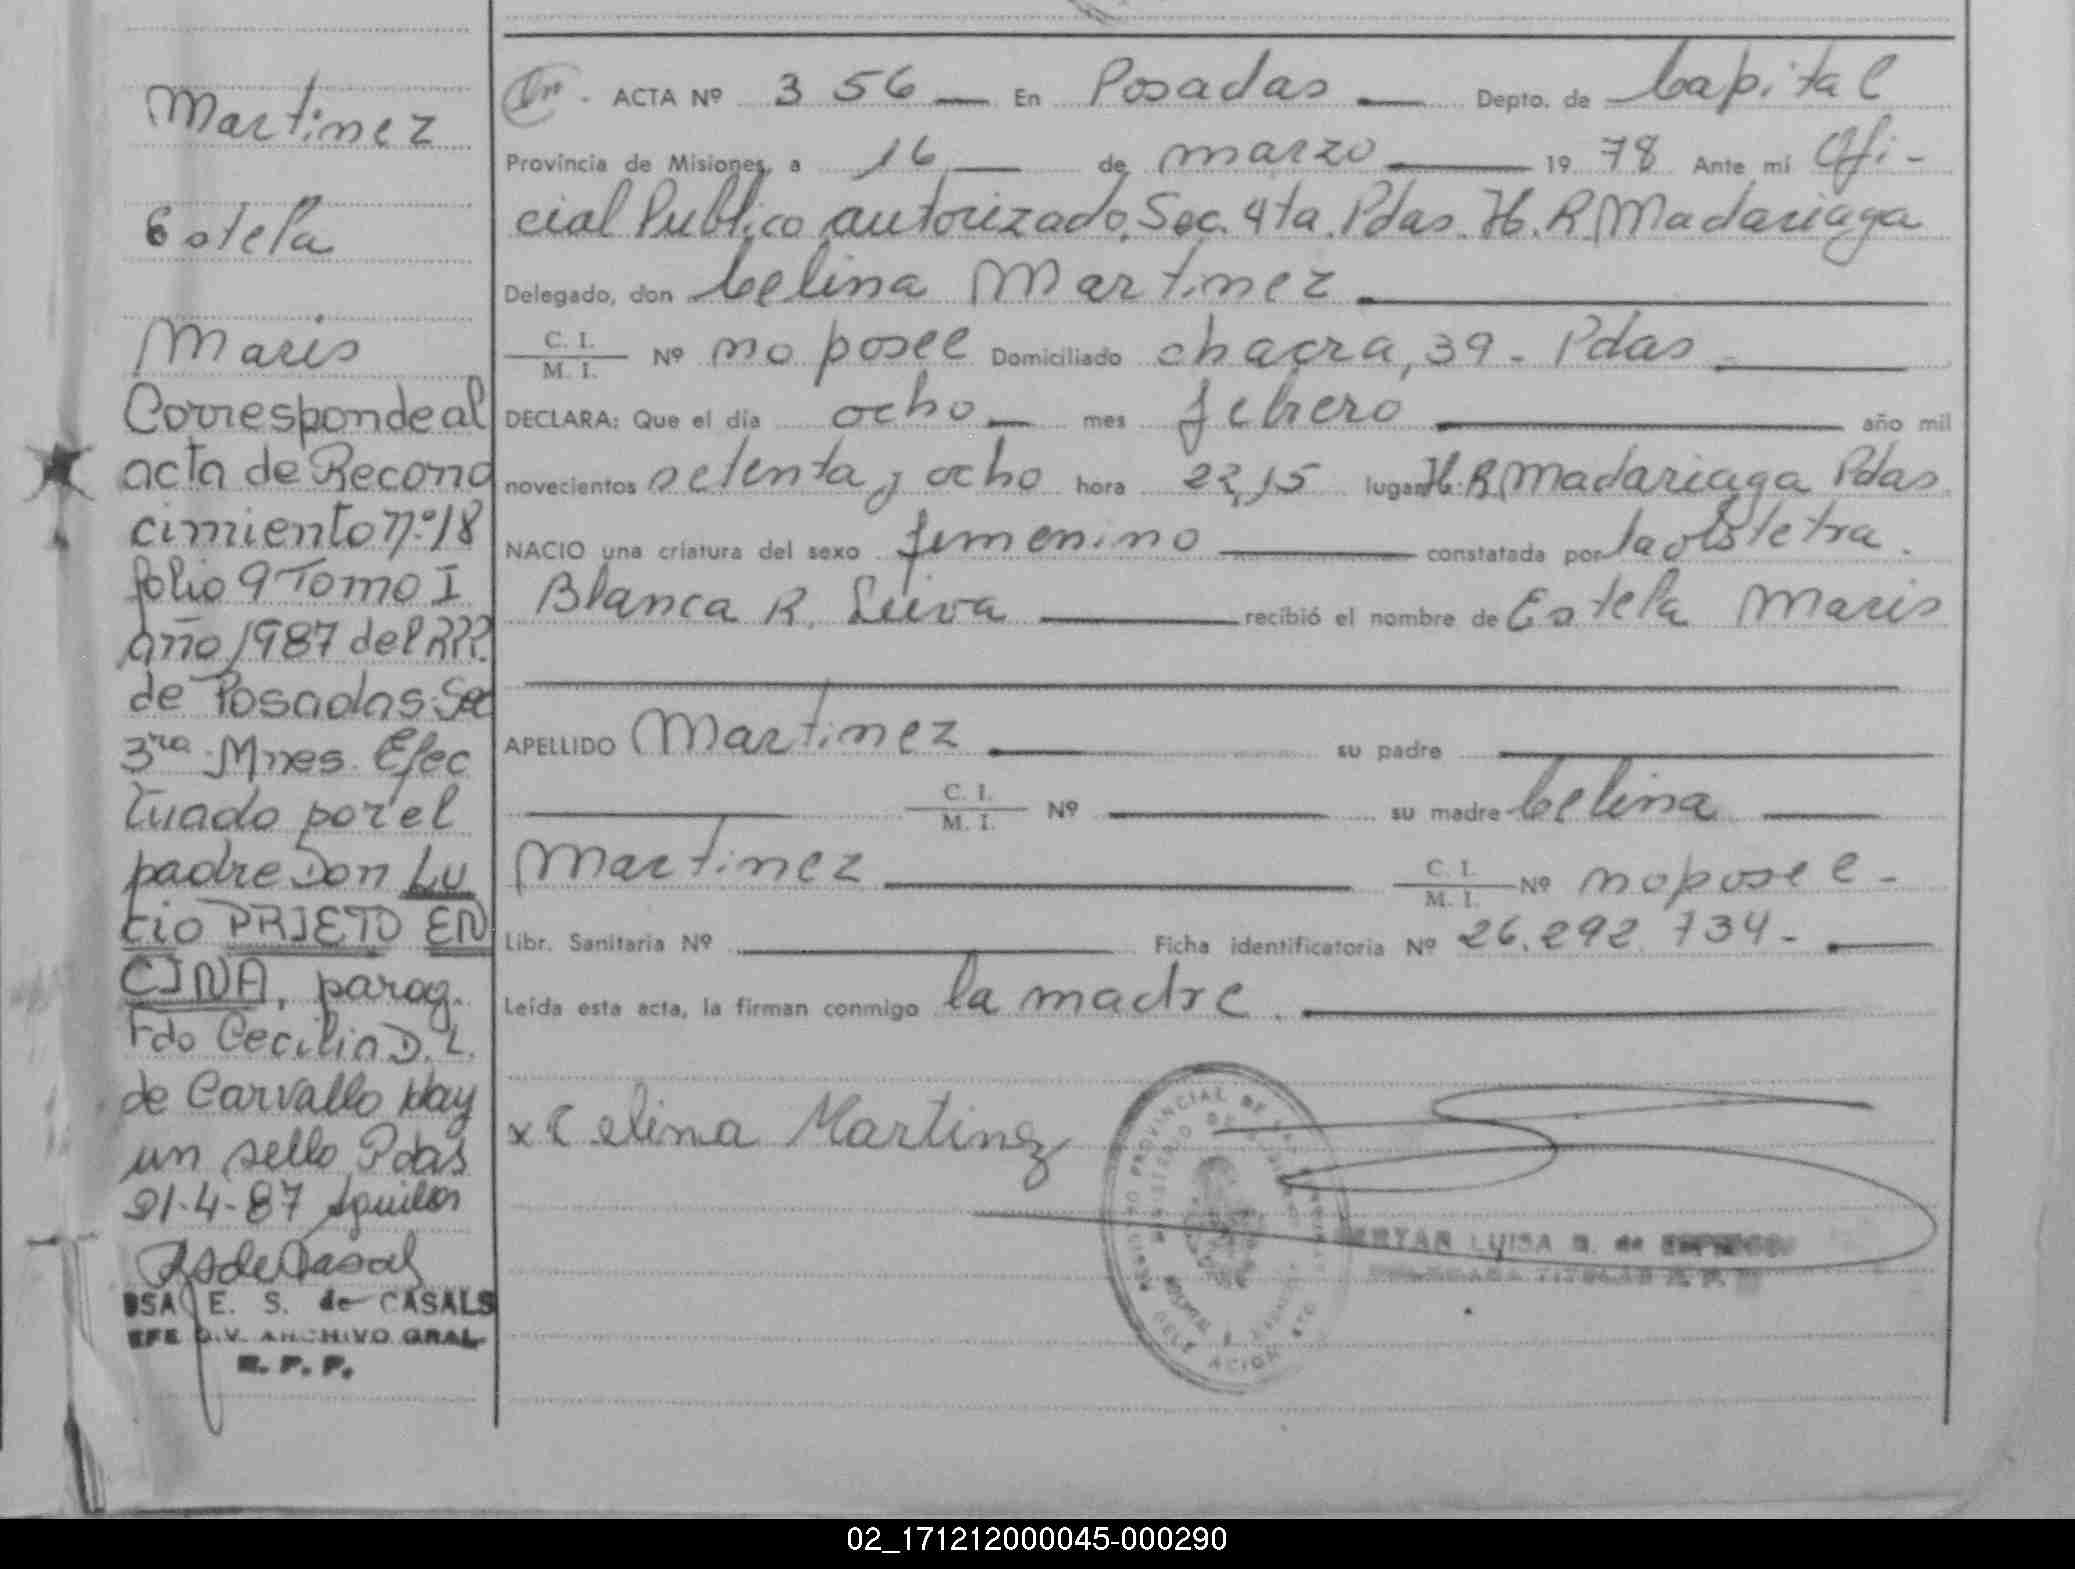 Martinez
Estela
Maris
Corresponde al
acta de Recono
cimiento nº 18
folio 9 Tomo I
año 1987 del RPP.
de Posadas Sec
3ra Mnes. Efec
tuado por el
padre Don Lu
cio PRIETO EN
CINA, parag.
Fdo Cecilia D. L.
de Carvallo Hay
un sello Pdas
21-4-87
E. S. de CASALS
EFE DIV. ARCHIVO GRAL
R. P. P.
ACTA Nº 356 En Posadas Depto. de Capital
Provincia de Misiones, a 16 de marzo 19 78 Ante mí Ofi-
cial Publico autorizado Sec. 4ta. Pdas. H. R. Madariaga
Delegado, don Celina Martinez
C. I.
M. I. Nº no posee Domiciliado chacra, 39 - Pdas
DECLARA: Que el día ocho mes febrero año mil
novecientos setenta y ocho hora 22,15 lugar H. R. Madariaga Pdas.
NACIO una criatura del sexo femenino constatada por la obstetra.
Blanca R. Leiva recibió el nombre de Estela Maris
APELLIDO Martinez su padre
C. I.
M. I. Nº su madre Celina
Martinez C. I.
M. I. Nº no posee -
Libr. Sanitaria Nº Ficha identificatoria Nº 26.292.734-
Leída esta acta, la firman conmigo la madre.
x Celina Martinez
LUISA
02_171212000045-000290